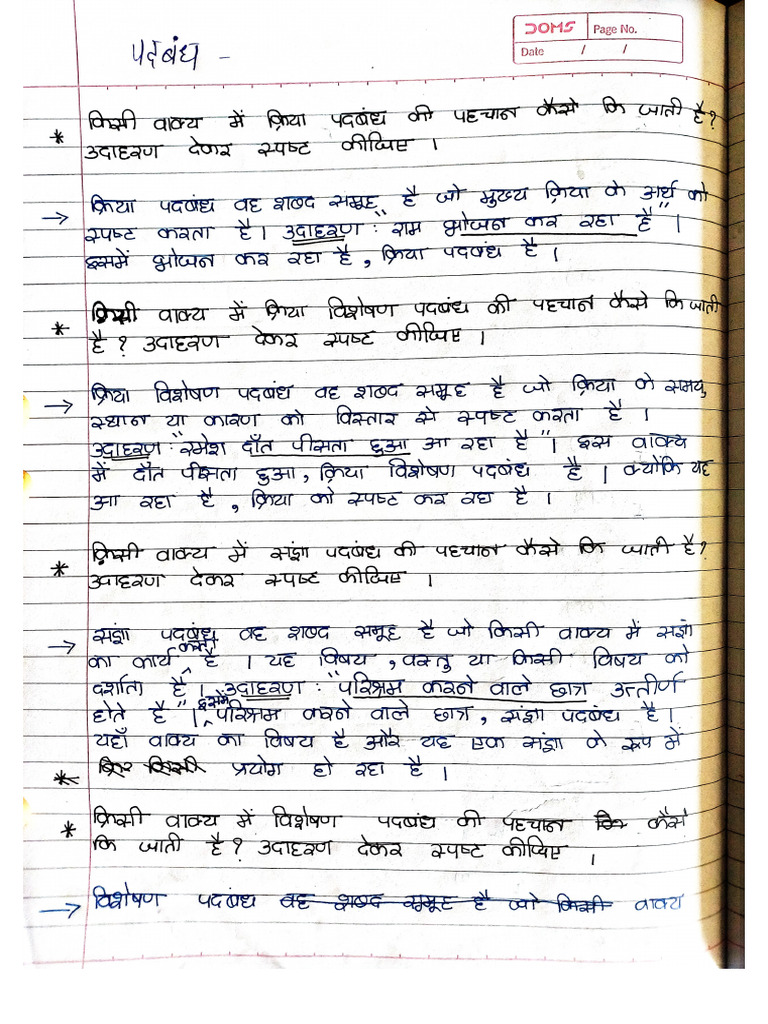 DOMS Page No.
Date / /
पदबंध -
* किसी वाक्य में क्रिया पदबंध की पहचान कैसे कि जाती है?
उदाहरण देकर स्पष्ट कीजिए ।
→ क्रिया पदबंध वह शब्द समूह है जो मुख्य क्रिया के अर्थ को
स्पष्ट करता है। उदाहरण: "राम भोजन कर रहा है"।
इसमें भोजन कर रहा है, क्रिया पदबंध है ।
* किसी वाक्य में क्रिया विशेषण पदबंध की पहचान कैसे कि जाती
है? उदाहरण देकर स्पष्ट कीजिए ।
→ क्रिया विशेषण पदबंध वह शब्द समूह है जो क्रिया के समय,
स्थान या कारण को विस्तार से स्पष्ट करता है ।
उदाहरण: "रमेश दाँत पीसता हुआ आ रहा है"। इस वाक्य
में दाँत पीसता हुआ, क्रिया विशेषण पदबंध है । क्योंकि यह
आ रहा है, क्रिया को स्पष्ट कर रहा है ।
* किसी वाक्य में संज्ञा पदबंध की पहचान कैसे कि जाती है?
उदाहरण देकर स्पष्ट कीजिए ।
→ संज्ञा पदबंध वह शब्द समूह है जो किसी वाक्य में संज्ञा
का कार्य करता है । यह विषय, वस्तु या किसी विषय को
दर्शाता है । उदाहरण: "परिश्रम करने वाले छात्र उत्तीर्ण
होते है"। इसमें परिश्रम करने वाले छात्र, संज्ञा पदबंध है ।
यहाँ वाक्य का विषय है और यह एक संज्ञा के रूप में
* किसी प्रयोग हो रहा है ।
* किसी वाक्य में विशेषण पदबंध की पहचान कि कैसे
कि जाती है? उदाहरण देकर स्पष्ट कीजिए ।
→ विशेषण पदबंध वह शब्द समूह है जो किसी वाक्य